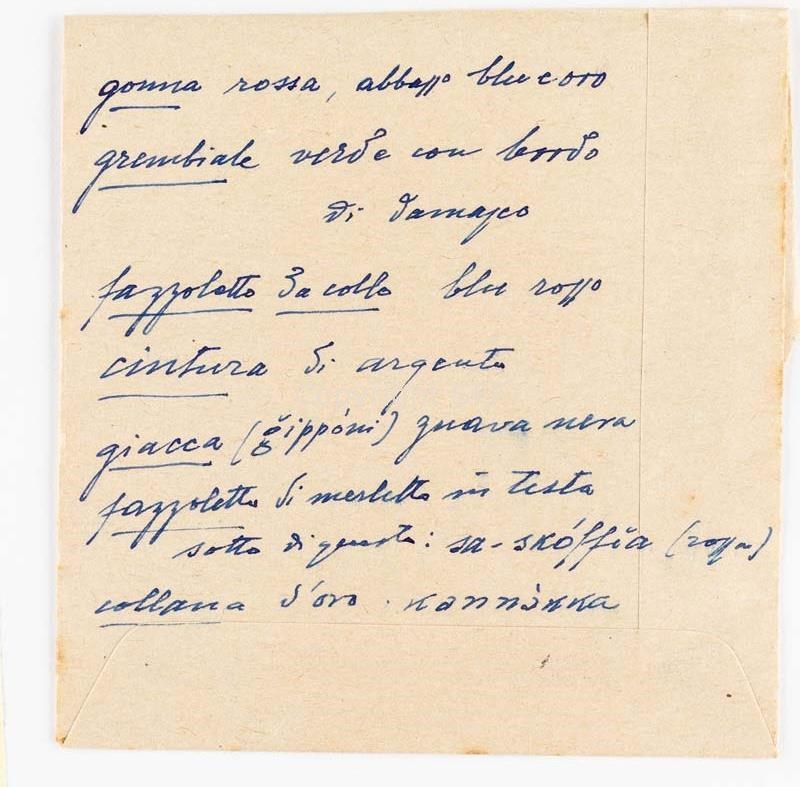 gonna rossa, abbasso blu e oro
grembiale verde con bordo
di damasco
fazzoletto da collo blu rosso
cintura di argento
giacca (ǧippóni) nuova nera
fazzoletto di merletto in testa
sotto di questo: sa-skóffia (rossa)
collana d'oro. kannàkka